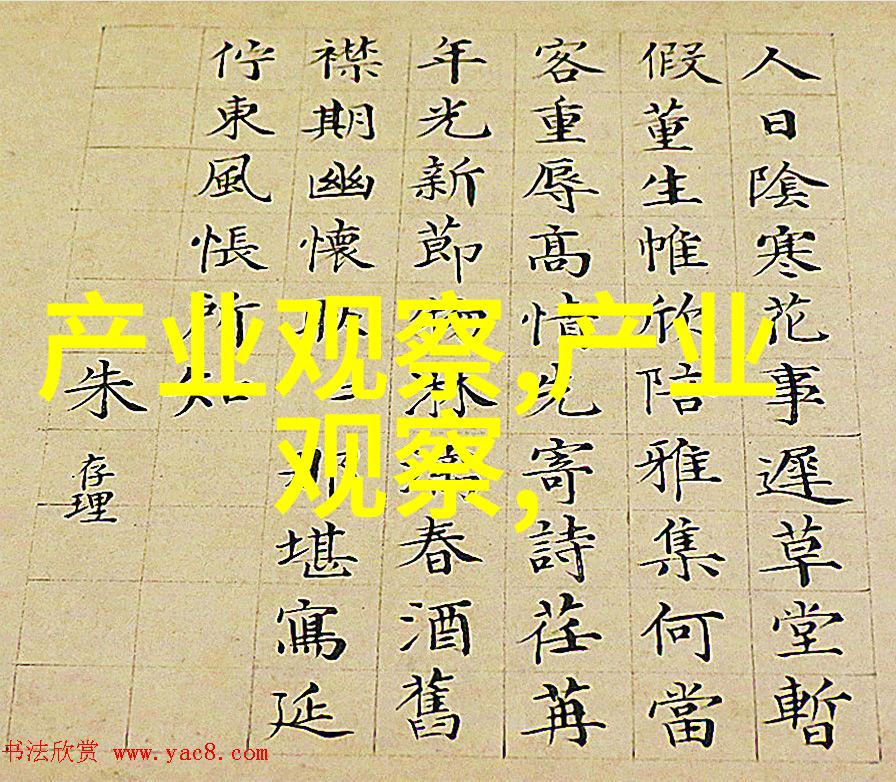 人日陰寒花事遲草堂暫
假董生帷欣陪雅集何當
客重辱高情先寄詩荏苒
年光新節物淋漓春酒舊
襟期幽懷那堪寫延
佇東風悵所知
朱存理
产业观察,产业
观察,
书法欣赏 www.yac8.com